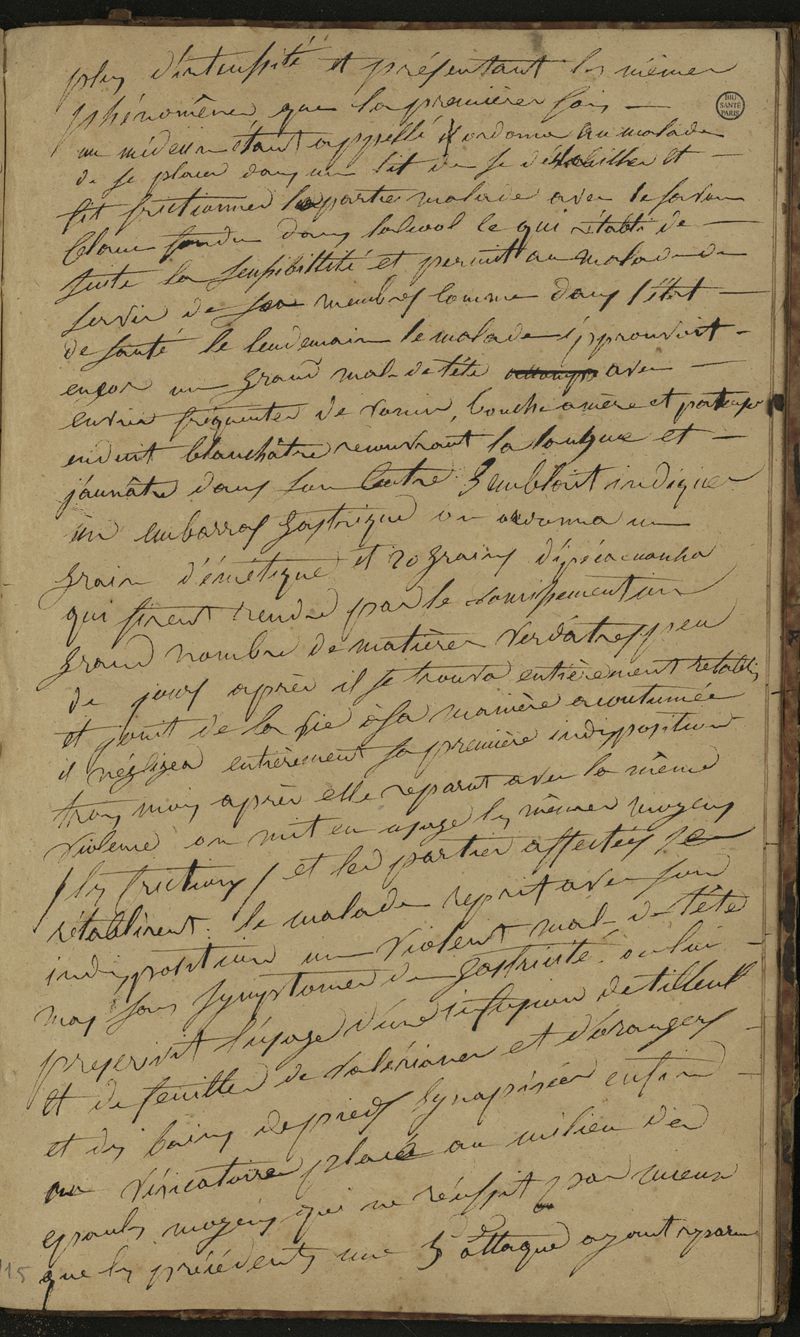 plus d'intensité et présentant les mêmes
phénomènes que la première fois —
un médecin étant appellé il ordonna au malade
de se placer dans un lit de se déshabiller et —
fit frictionner la partie malade avec le savon
blanc fondu dans lalcool ce qui rétabli de —
suite la sensibillité et permit au malade de
servir de ses membres comme dans l'état —
de santé le lendemain le malade épprouvoit —
encor un grand mal de tête avec —
envies fréquentes de vomir, bouche amère et pateuse
enduit blanchâtre recouvrant la langue et —
jaunâtre dans son centre sembloit indiquer
un embarras gastrique on ordonna un
grain d'émétique et 20 grains d'ipécacuanha
qui firent rendre par le vomissement un
grand nombre de matières verdâtres peu
de jours après il se trouva entièrement retabli
et jouit de la vie à sa manière acoutumée
il négligea entièrement sa première indisposition
trois mois après elle reparut avec la même
violence on mit en usage les mêmes moyens
/ les frictions / et les parties affectées se
rétablirent. le malade reprit avec son
indisposition un violent mal de tête
mais sans symptomes de gastricité. on lui —
prescrivit l'usage d'une infusion de tilleul
et de feuilles de valériane et d'orangers —
et des bains de pieds synapisées enfin —
un vésicatoire placé au milieu des
epaules moyens qui ne réussit pas mieux
que les précédents une 3e attaque ayant reparu
BIU
SANTÉ
PARIS
115